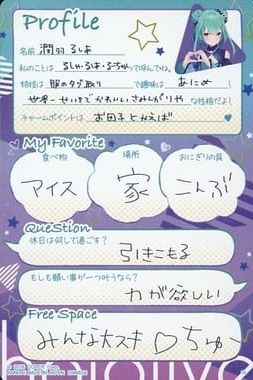 Profile
名前 潤羽るしあ
私のことは るしあ・るーちゃん って呼んでね。
特技は 服のタグ取り で趣味は あにめ
世界一せいそでかわいいさみしがりや な性格だよ!
チャームポイントは お団子とかえば ♥
My Favorite
食べ物 場所 おにぎりの具
アイス 家 こんぶ
QueStion
休日は何して過ごす?
引きこもる
もしも願い事が一つ叶うなら?
力が欲しい
Free Space
みんな大スキ♡ちゅ〜
hololive